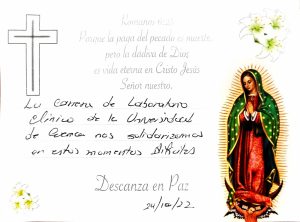 Romanos 6:23
Porque la paga del pecado es muerte,
pero la dadiva de Dios
es vida eterna en Cristo Jesús
Señor nuestro.
La Carrera de Laboratorio
Clínico de la Universidad
de Cuenca nos solidarizamos
en estos momentos difíciles
Descanza en Paz
24/10/22